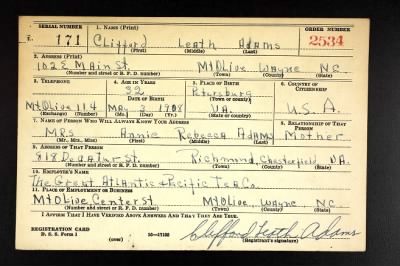 SERIAL NUMBER 1. NAME (Print) ORDER NUMBER
E. 171 Clifford Leath Adams 2534
(First) (Middle) (Last)
2. ADDRESS (Print)
102 E Main St. Mt Olive Wayne NC.
(Number and street or R. F. D. number) (Town) (County) (State)
3. TELEPHONE 4. AGE IN YEARS 5. PLACE OF BIRTH 6. COUNTRY OF CITIZENSHIP
32 Petersburg
DATE OF BIRTH (Town or county)
Mt Olive 114 1908 VA. U.S.A.
(Exchange) (Number) (Mo.) (Day) (Yr.) (State or country)
7. NAME OF PERSON WHO WILL ALWAYS KNOW YOUR ADDRESS 8. RELATIONSHIP OF THAT PERSON
Mrs Annie Rebecca Adams Mother
(Mr., Mrs., Miss) (First) (Middle) (Last)
9. ADDRESS OF THAT PERSON
818 St. Richmond, Chesterfield VA.
(Number and street or R. F. D. number) (Town) (County) (State)
10. EMPLOYER'S NAME
The Great Atlantic & Pacific Tea Co.
11. PLACE OF EMPLOYMENT OR BUSINESS
Mt Olive Center St Mt Olive, Wayne NC.
(Number and street or R. F. D. number) (Town) (County) (State)
I AFFIRM THAT I HAVE VERIFIED ABOVE ANSWERS AND THAT THEY ARE TRUE.
REGISTRATION CARD
D. S. S. Form 1 (over) 16—17105 Clifford Leath Adams
(Registrant's signature)